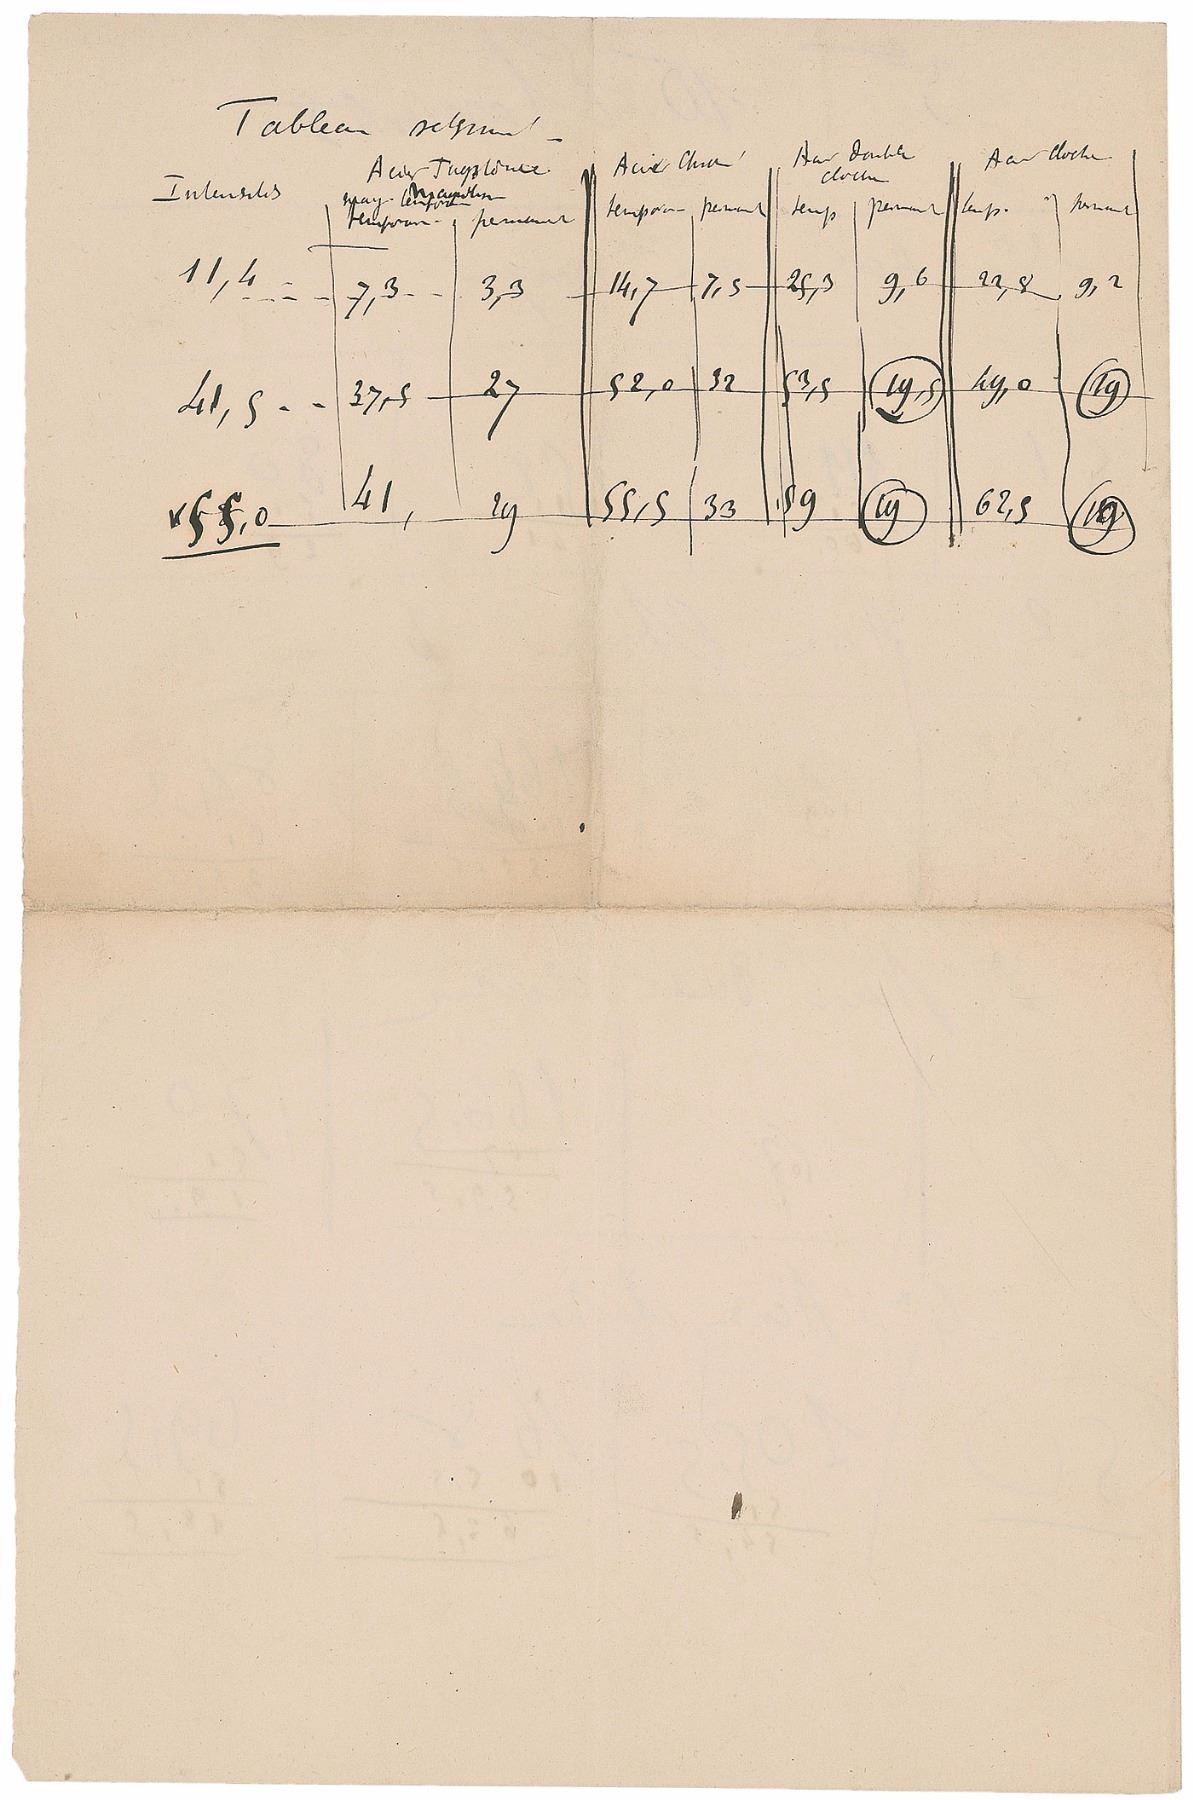 Tableau résumé
Acier Tungstène Acier Chromé Acier double Acier cloche
cloche
Intensités
temporair permanent temporair permant temp permant temp. permant
11,4 7,3 3,3 14,7 7,5 25,3 9,6 22,8 9,2
41,5 37,5 27 52,0 32 53,5 19,5 49,0 19
55,0 41, 29 55,5 33 59 19 62,5 19